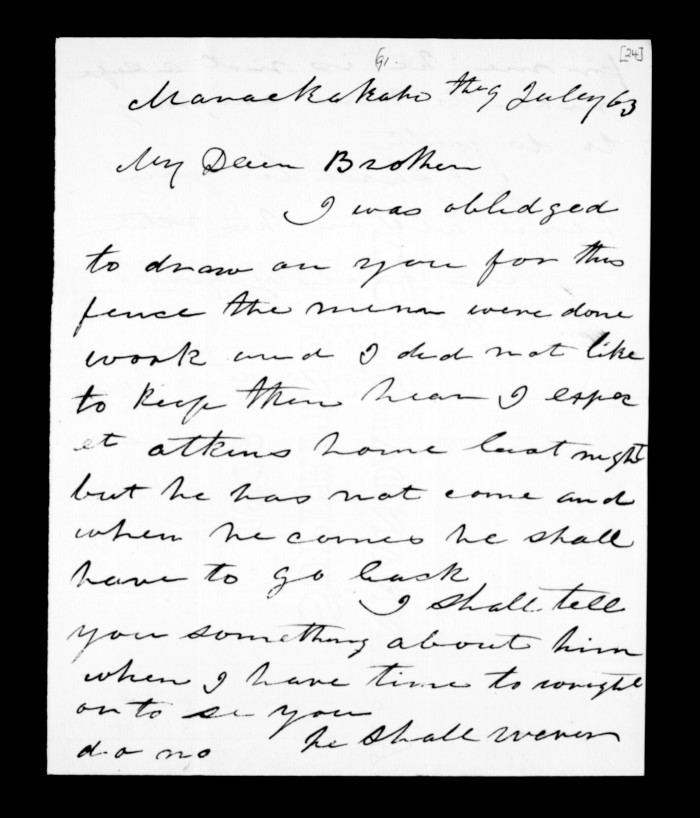 91.
[24]
Maraekakaho the 9 July 63
My Deer Brother
I was oblidged
to draw on you for this
fence the menn were done
work and I did not like
to keep them hear I expec
et atkins home last night
but he has not come and
when he comes he shall
have to go back
I shall tell
you something about him
when I have time to wright
or to se you
he shall never
do no